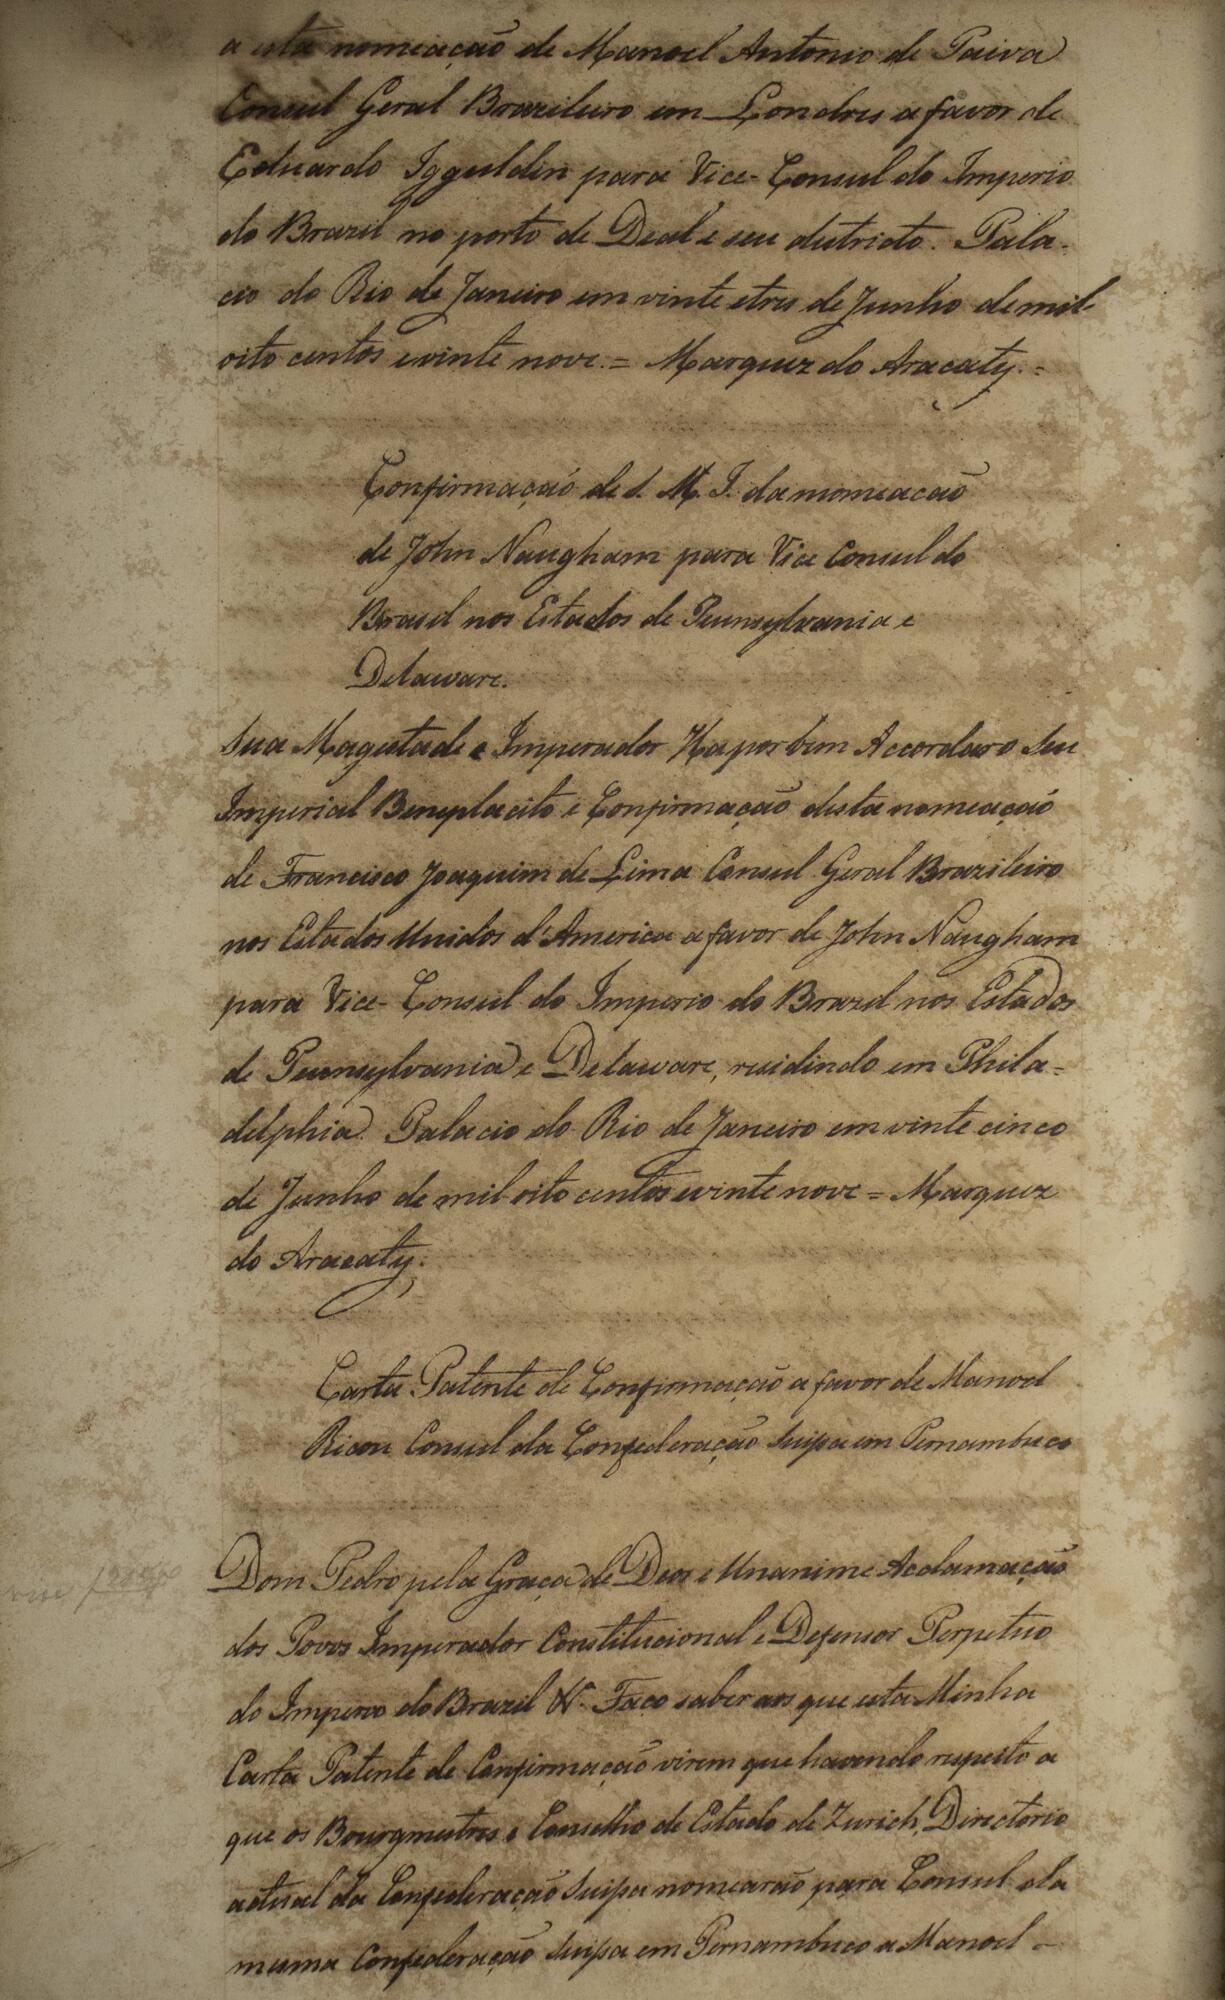 a esta nomeação de Manoel Antonio de Paiva
Consul Geral Brazileiro em Londres a favor de
Eduardo Iggulden para Vice-Consul do Imperio
do Brazil no porto de Deal e seu districto. Pala-
cio do Rio de Janeiro em vinte e tres de Junho de mil
oito centos e vinte nove. = Marquez do Aracaty. =
Confirmação de S. M. I. da nomeacão
de John Naugham para Vice Consul do
Brasil nos Estados de Pennsylvania e
Delaware.
Sua Magestade o Imperador Ha por bem Accordar o Seu
Imperial Beneplacito e Confirmação desta nomeação
de Francisco Joaquim de Lima Consul Geral Brazileiro
nos Estados Unidos d'America a favor de John Naugham
para Vice-Consul do Imperio do Brazil nos Estados
de Pennsylvania e Delaware, residindo em Phila-
delphia. Palacio do Rio de Janeiro em vinte cinco
de Junho de mil oito centos e vinte nove = Marquez
do Aracaty.
Carta Patente de Confirmação a favor de Manoel
Ricou Consul da Confederação Suissa em Pernambuco
Dom Pedro pela Graça de Deos e Unanime Acclamação
dos Povos Imperador Constitucional e Defensor Perpetuo
do Imperio do Brazil &. Faço saber aos que esta Minha
Carta Patente de Confirmação virem que havendo respeito a
que os Bourgmestres e Conselho de Estado de Zurich, Directorio
actual da Confederação Suissa nomearão para Consul da
mesma Confederação Suissa em Pernambuco a Manoel -